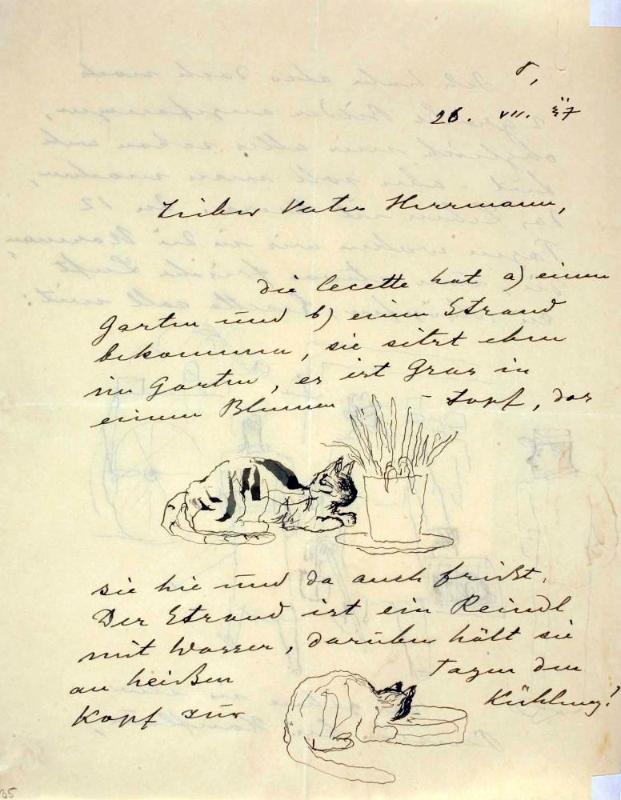 26. VII. 37
Lieber Vater Herrmann,
die Cecette hat a) einen
Garten und b) einen Strand
bekommen, sie sitzt eben
im Garten, es ist Gras in
einem Blumen - topf, das
sie hie und da auch frißt.
Der Strand ist ein Reindl
mit Wasser, darüber hält sie
an heißen Tagen den
Kopf zur Kühlung!
35